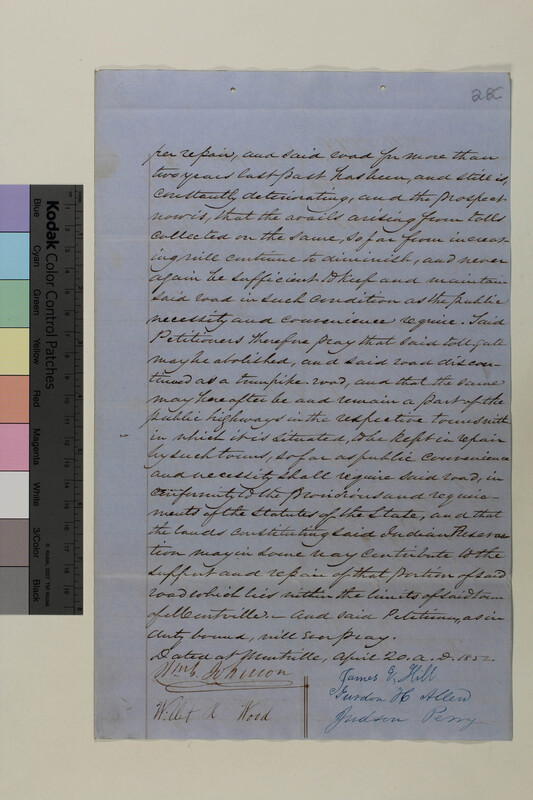 28
per repair, and said road for more than
two years last past has been, and still is,
constantly deteriorating, and the prospect
now is, that the avails arising from tolls
collected on the same, so far from increas-
ing will continue to diminish, and never
again be sufficient to keep and maintain
said road in such condition as the public
necessity and convenience require. Said
Petitioners therefore pray that said toll gate
may be abolished, and said road discon-
tinued as a turnpike road, and that the same
may hereafter be and remain a part of the
public highways in the respective towns with
in which it is situated, to be kept in repair
by such towns, so far as public convenience
and necessity shall require said road, in
conformity to the provisions and require-
ments of the Statutes of the State, and that
the lands constituting said Indian Reserva
tion may in some way contribute to the
support and repair of that portion of said
road which lies within the limits of said town
of Montville. And said Petitioners, as in
duty bound, will ever pray.
Dated at Montville, April 20. A.D. 185
James Hill
Gurdon H Allen
Willet R Wood
Judson Perry
Kodak Color Control Patches
Blue
Cyan
Green
Yellow
Red
Magenta
White
3/Color
Black